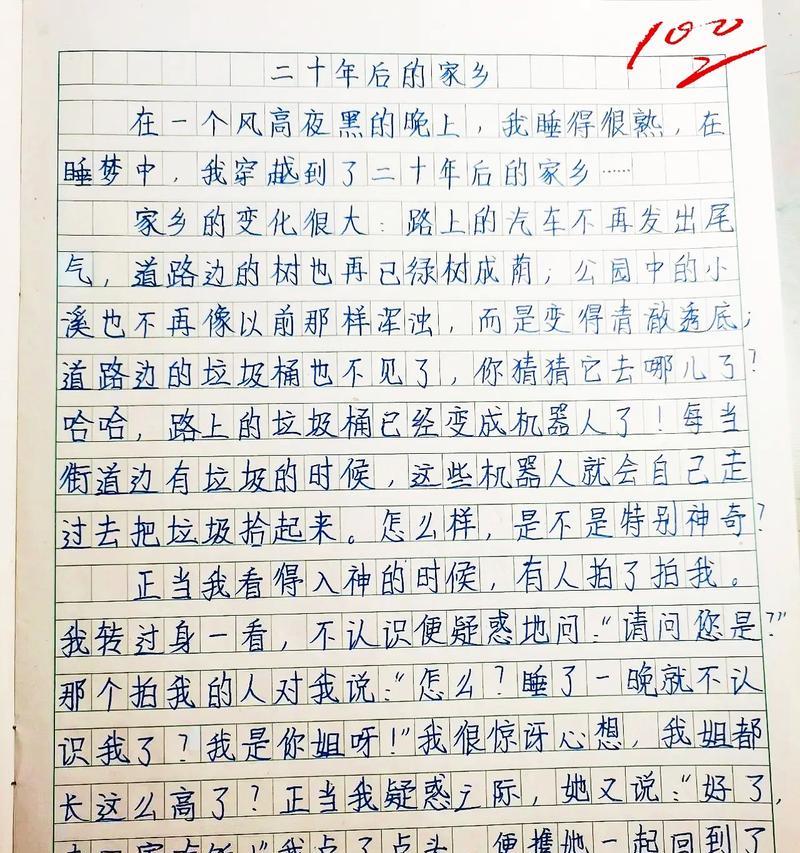 100
二十年后的家乡
在一个风高夜黑的晚上，我睡得很熟，在
睡梦中，我穿越到了二十年后的家乡……
家乡的变化很大：路上的汽车不再发出尾
气，道路边的树也再已绿树成荫；公园中的小
溪也不再像以前那样浑浊，而是变得清澈透底；
道路边的垃圾桶也不见了，你猜猜它去哪儿了？
哈哈，路上的垃圾桶已经变成机器人了！每当
街道边有垃圾的时候，这些机器人就会自己走
过去把垃圾拾起来。怎么样，是不是特别神奇？
正当我看得入神的时候，有人拍了拍我。
我转过身一看，不认识便疑惑地问：“请问您是？”
那个拍我的人对我说：“怎么？睡了一晚就不认
识我了？我是你姐呀！”我很惊讶心想，我姐都
长这么高了？正当我疑惑之际，她又说：“好了，
我点了点头，便携她一起回到了